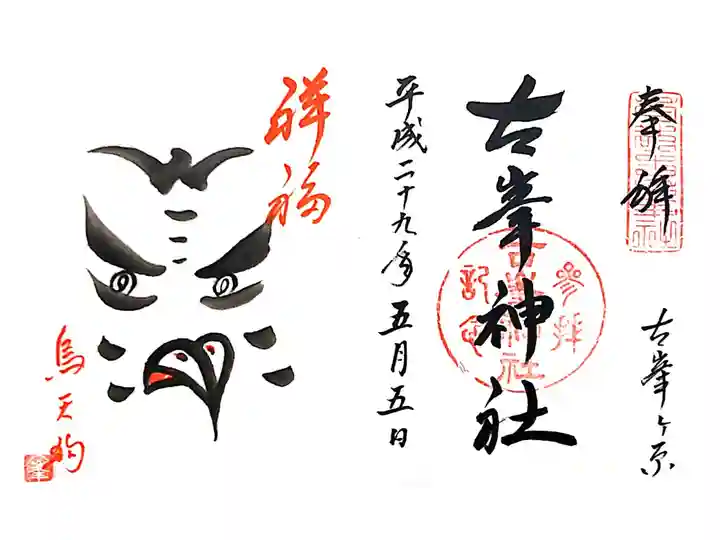 奉拝
古峯ヶ原
古峯神社
参拝
記念
平成二十九年五月五日
祥福
烏天狗